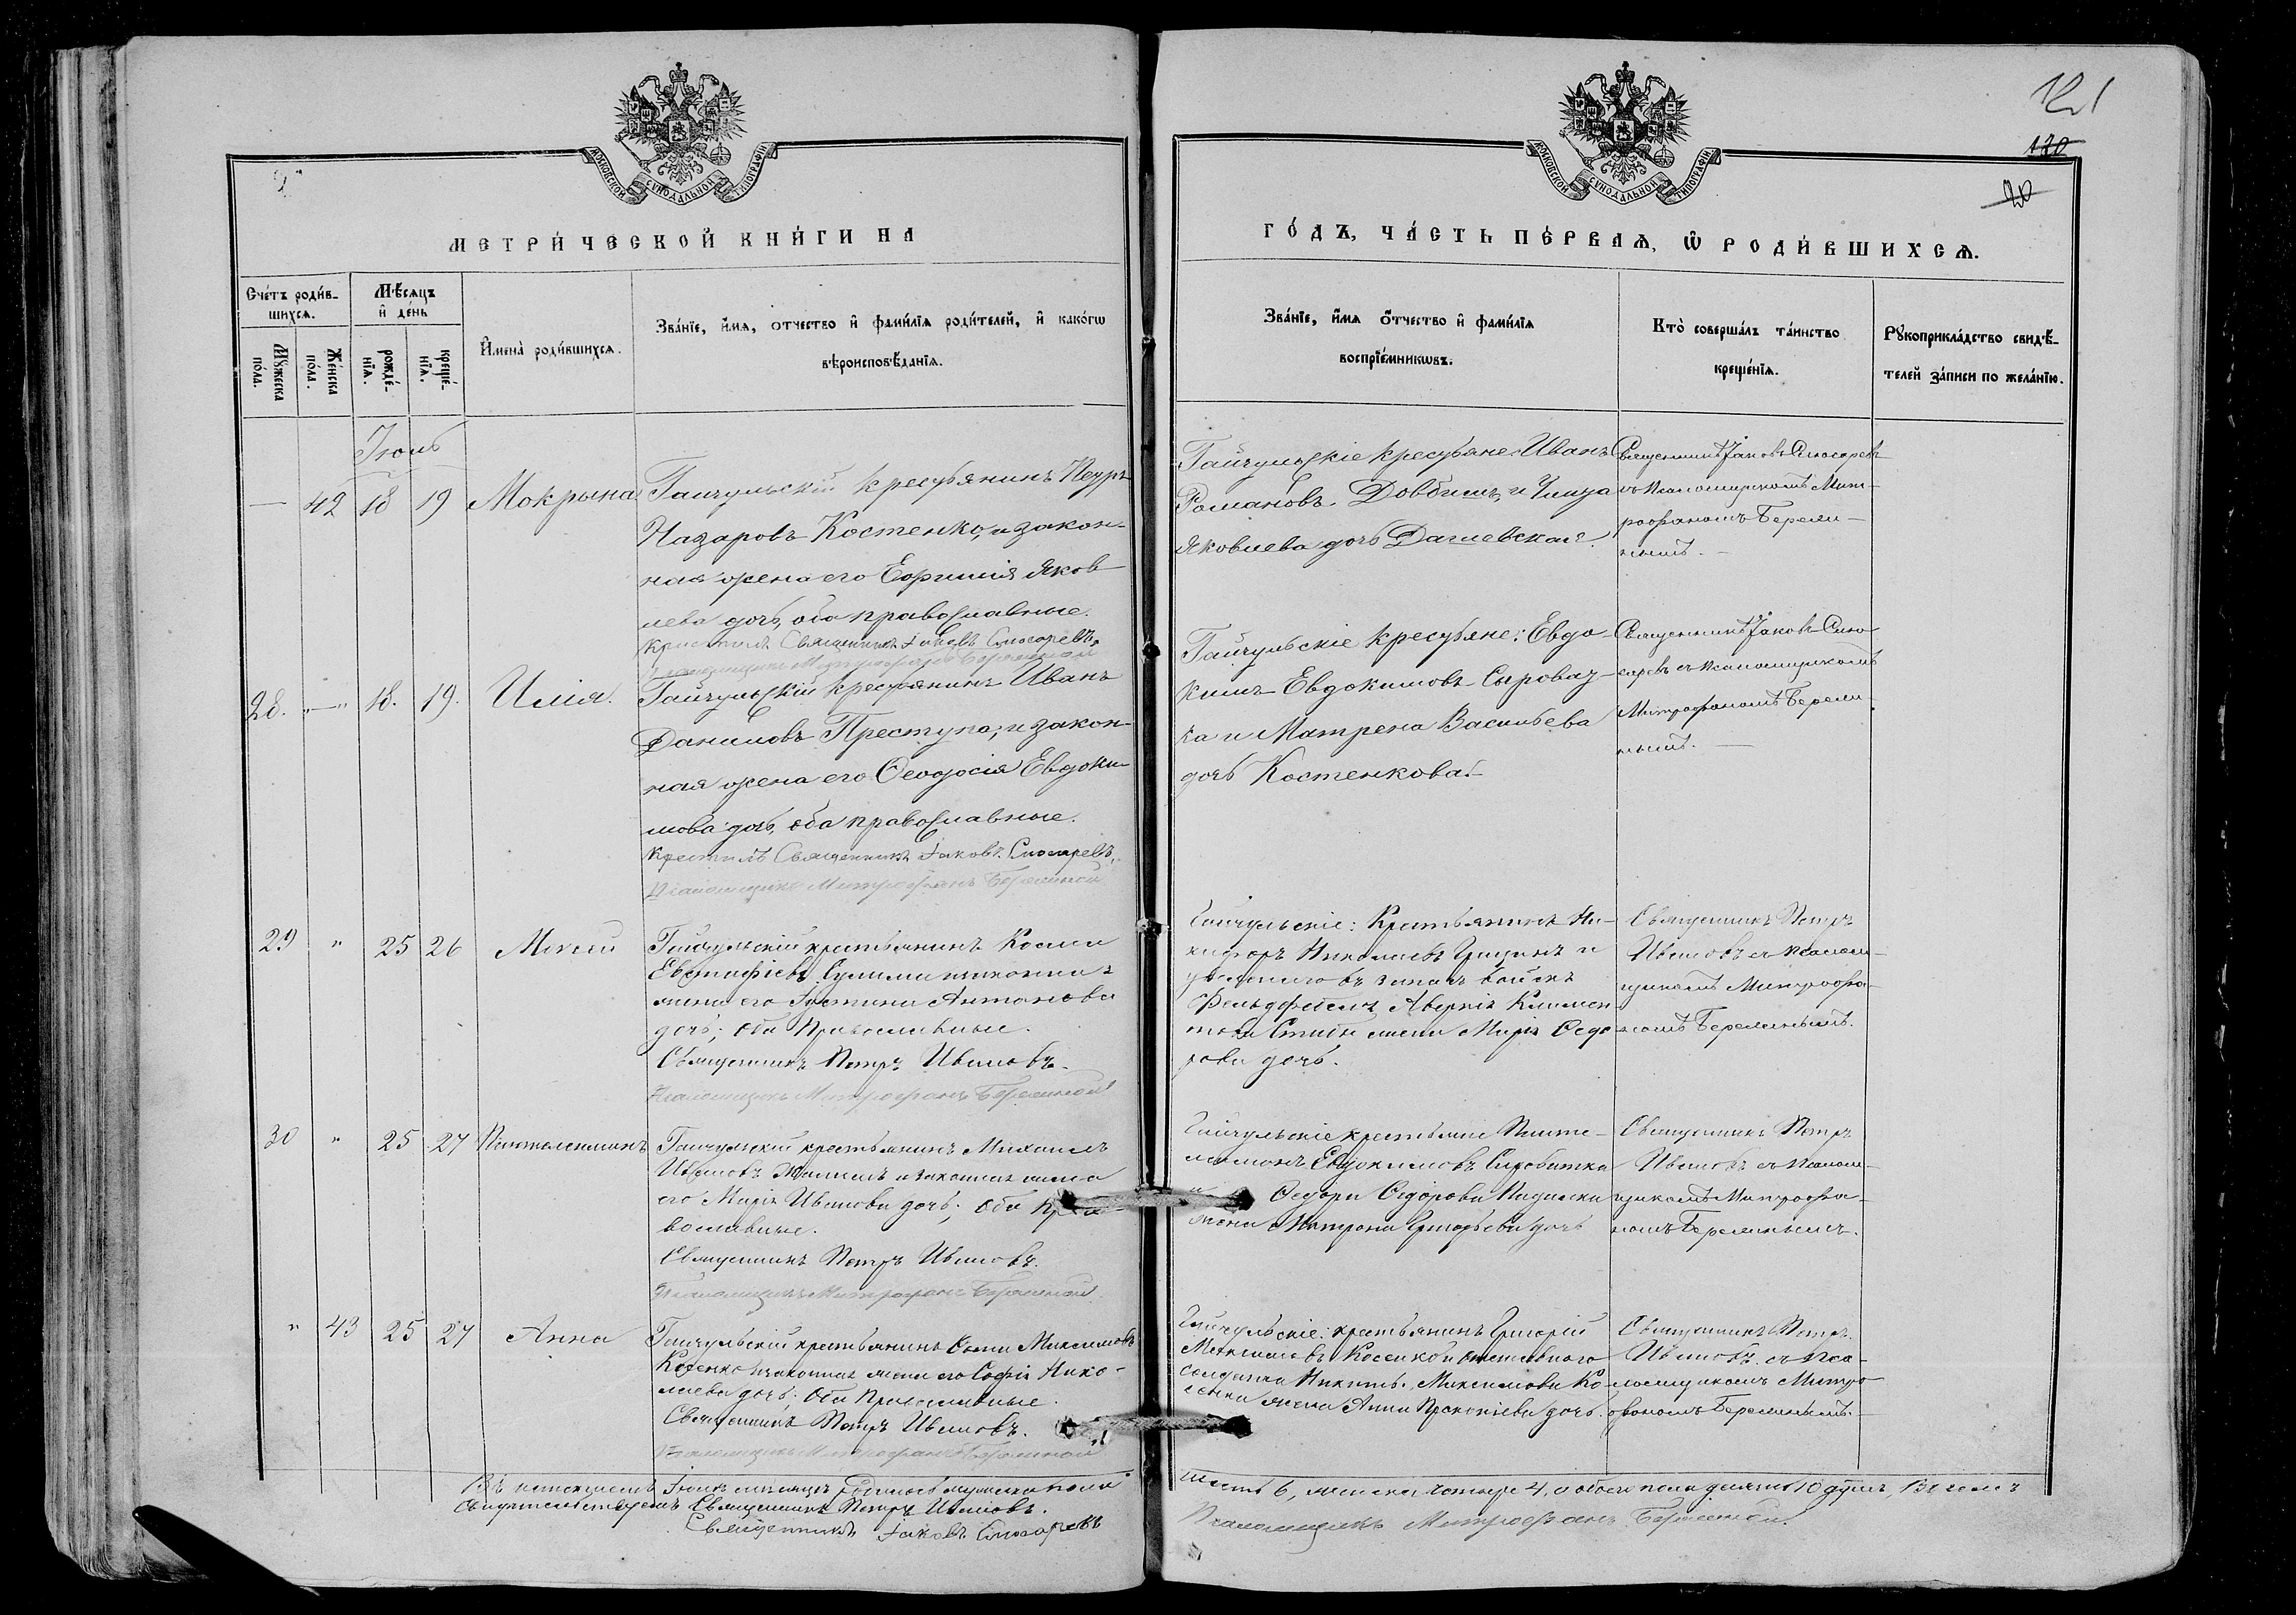 121
120
20
МОСКОВСКОЙ СУНОДАЛЬНОЙ ТИПОГРАФІИ
МОСКОВСКОЙ СУНОДАЛЬНОЙ ТИПОГРАФІИ
МЕТРИ́ЧЕСКОЙ КНИ́ГИ НА
ГО́ДЪ, ЧА́СТЬ ПЕ́РВАѦ, Ѿ РОДИ́ВШИХСѦ.
Сче́тъ роди́в-
шихсѧ.
Мѣ́сѧцъ
и̂ де́нь
Мꙋ́жеска
по́ла.
Же́нска
по́ла.
рожде́-
нїѧ.
креще́-
нїѧ.
И̂мена̀ роди́вшихсѧ.
Зва́нїе, и̂́мѧ, о́тчество и̂ фами́лїѧ роди́телей, и̂ како́гѡ
вѣроисповѣ́данїѧ.
Зва́нїе, и̂́мѧ о́тчество и̂ фами́лїѧ
воспрїе́мникѡвъ.
Кто̀ соверша́лъ та́инство
креще́нїѧ.
Рꙋкоприкла́дство свидѣ́-
телей за́писи по жела́нїю.
Іюль
— 42 18 19 Мокрына
Гайчульскій крестьянинъ Петръ
Назаровъ Костенко, и закон-
ная жена его Евфимія Яков
лева дочь, оба православные.
Крестилъ Священникъ Іаковъ Слюсаревъ
Псаломщикъ Митрофанъ Береминой
Гайчульскіе крестьяне: Иванъ
Романовъ Довбишъ, и
Яковлева дочь
Священникъ Іаковъ Слюсаревъ
съ Псаломщикомъ Мит-
рофаномъ Береми-
нымъ. —
28. 18. 19. Илія.
Гайчульскій крестьянинъ Иванъ
Даниловъ Преступа, и закон-
ная жена его Ѳеодосія Евдоки-
мова дочь, оба православные.
Крестилъ Священникъ Іаковъ Слюсаревъ.
Псаломщикъ Митрофанъ Береминой
Гайчульскіе крестьяне: Евдо-
кимъ Евдокимовъ Сыроват-
ка и Матрена Васильева
дочь Костенкова. —
Священникъ Іаковъ Слю-
саревъ съ Псаломщикомъ
Митрофаномъ Береми-
нымъ. —
29 " 25 26
Гайчульскій крестьянинъ Косма
Евстафіевъ Сулима и законная
жена его Іустина Антонова
дочь; оба Православные.
Священникъ Петръ Ивановъ.
Псаломщикъ Митрофанъ Береминой
Гайчульскіе: Крестьянинъ Ни-
кифоръ Николаевъ Грицинъ и
уволеннаго въ запасъ войскъ
Фельдфебеля Аверкія Климен-
това жена Марія Ѳедо
рова дочь.
Священникъ Петръ
Ивановъ съ псалом-
щикомъ Митрофа-
номъ Береминымъ.
30 " 25 27 Пантелеимонъ
Гайчульскій крестьянинъ Михаилъ
Ивановъ и законная жена
его Марія Иванова дочь; оба Пра-
вославные.
Священникъ Петръ Ивановъ.
Псаломщикъ Митрофанъ Береминой
Гайчульскіе крестьяне Панте-
леимонъ Евдокимовъ Сыроватка
и Ѳедора Ѳедорова
жена Матрона Григорьева дочь
Священникъ Петръ
Ивановъ съ псалом-
щикомъ Митрофа-
номъ Береминымъ.
" 43 25 27 Анна
Гайчульскій крестьянинъ Максимовъ
Косенко и законная жена его Софія Нико-
лаева дочь; оба Православные.
Священникъ Петръ Ивановъ.
Псаломщикъ Митрофанъ Береминой
Гайчульскіе: крестьянинъ Григорій
Максимовъ Косенко и отставного
солдата Никиты Максимова Ко-
сенка жена Анна Прокопіева дочь.
Священникъ Петръ
Ивановъ съ пса-
ломщикомъ Митро-
фаномъ Береминымъ.
Въ Іюлѣ мѣсяцѣ родилось мужеска пола
шесть 6, женска четыре 4, а обоего пола десять 10 душъ, Въ чемъ
свидѣтельствуемъ Священникъ Петръ Ивановъ.
Священникъ Іаковъ Слюсаревъ
Псаломщикъ Митрофанъ Береминой.